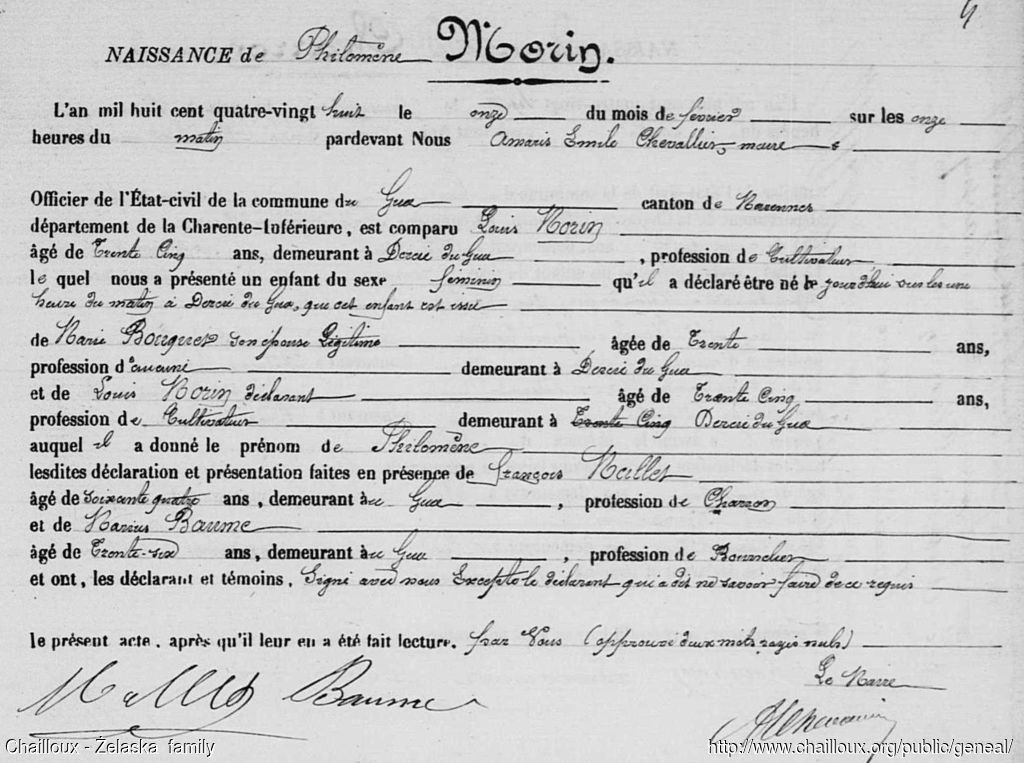 NAISSANCE de Philomène Morin.
L'an mil huit cent quatre-vingt huit le onze du mois de février sur les onze
heures du matin pardevant Nous Amaris Emile Chevallier, maire
Officier de l'État-civil de la commune du Gua canton de Marennes
département de la Charente-Inférieure, est comparu Louis Morin
âgé de Trente Cinq ans, demeurant à Dercie du Gua, profession de Cultivateur
le quel nous a présenté un enfant du sexe féminin qu'il a déclaré être né le jourd'hui sur les une
heure du matin à Dercie du Gua, que cet enfant est issu
de Marie Bouquet son épouse Légitime âgée de Trente ans,
profession d'aucune demeurant à Dercie du Gua
et de Louis Morin déclarant âgé de Trente Cinq ans,
profession de Cultivateur demeurant à Trente Cinq Dercie du Gua
auquel il a donné le prénom de Philomène
lesdites déclaration et présentation faites en présence de françois Mallet
âgé de soixante quatre ans, demeurant au Gua, profession de Charron
et de Marius Baume
âgé de Trente-six ans, demeurant au Gua, profession de
et ont, les déclarant et témoins, Signé avec nous Excepté le déclarant qui a dit ne savoir faire de ce requis
le présent acte, après qu'il leur en a été fait lecture. par Nous (approuvé deux mots rayés nuls)
Le Maire
Mallet Baume
Chailloux - Żelaska family http://www.chailloux.org/public/geneal/